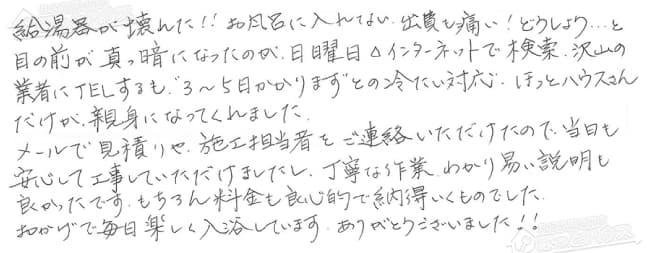 給湯器が壊れた!!お風呂に入れない、出費も痛い!どうしよう…と
目の前が真っ暗になったのが、日曜日△インターネットで検索、沢山の
業者にTELするも、"3〜5日かかります"との冷たい対応、ほっとハウスさん
だけが、親身になってくれました、
メールで見積りや、施工担当者をご連絡いただけたので、当日も
安心して工事していただけましたし、丁寧な作業、わかり易い説明も
良かったです。もちろん料金も良心的で納得いくものでした。
おかげで毎日楽しく入浴しています、ありがとうございました!!